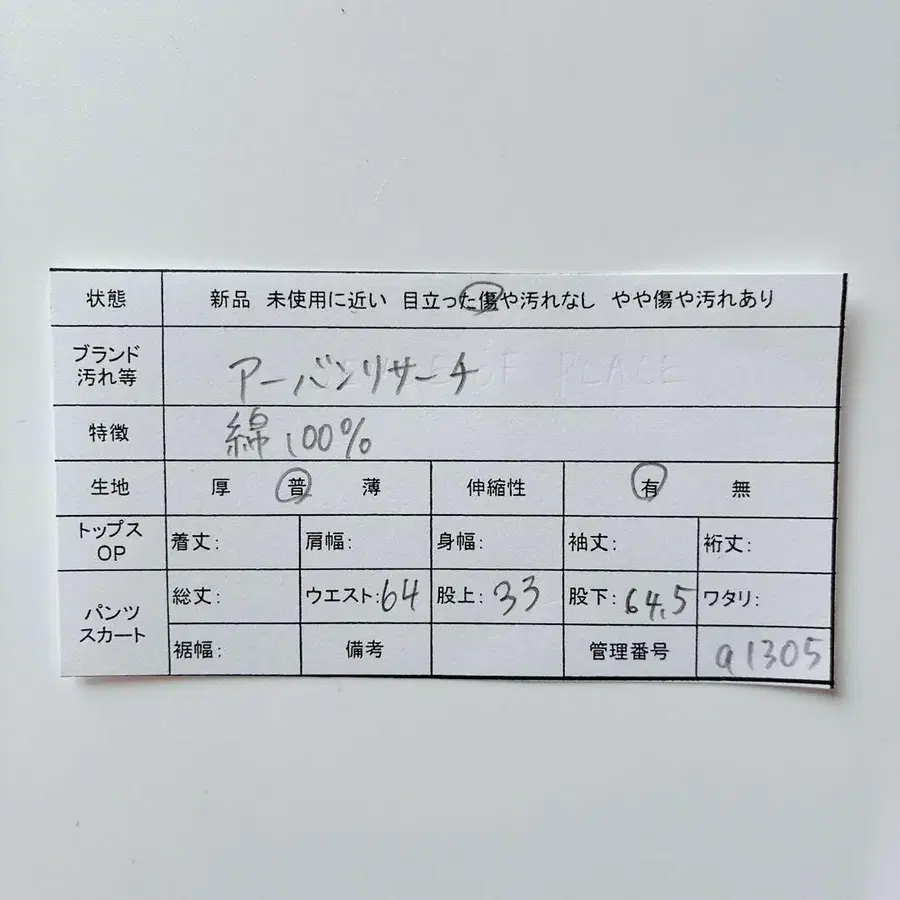 状態 新品 未使用に近い 目立った傷や汚れなし やや傷や汚れあり
ブランド
汚れ等 アーバンリサーチ
PLACE
特徴 綿100%
生地 厚 普 薄 伸縮性 有 無
トップス
OP 着丈: 肩幅: 身幅: 袖丈: 裄丈:
パンツ
スカート 総丈: ウエスト:64 股上:33 股下:64.5 ワタリ:
裾幅: 備考 管理番号 a1305